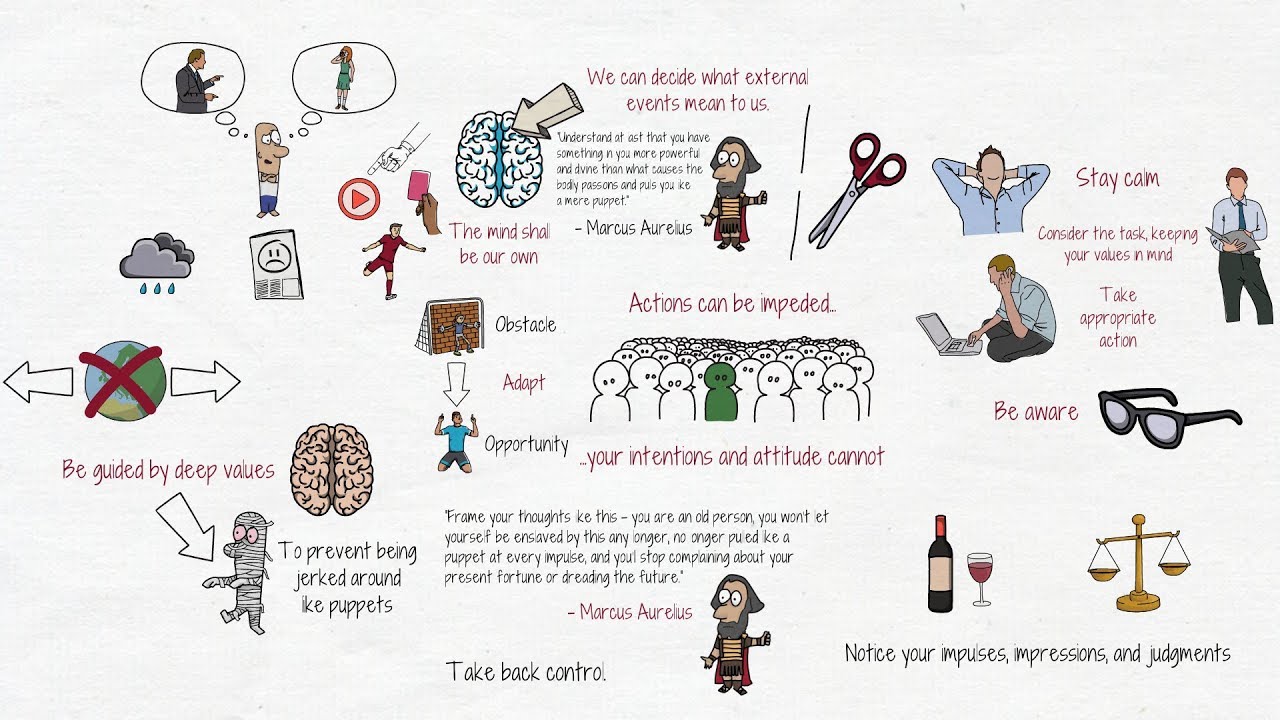 We can decide what external
events mean to us.
"Understand at ast that you have
something n you more powerful
and dvine than what causes the
bodly passons and puls you ike
a mere puppet."
- Marcus Aurelius
The mind shall
be our own
Stay calm
Consider the task, keeping
your values in mind
Take
appropriate
action
Obstacle
Adapt
Opportunity
Actions can be impeded...
...your intentions and attitude cannot
Be aware
Be guided by deep values
To prevent being
jerked around
like puppets
"Frame your thoughts ike this – you are an old person, you won't let
yourself be enslaved by this any longer, no onger puled ike a
puppet at every impulse, and you'l stop complaining about your
present fortune or dreading the future."
- Marcus Aurelius
Take back control.
Notice your impulses, impressions, and judgments